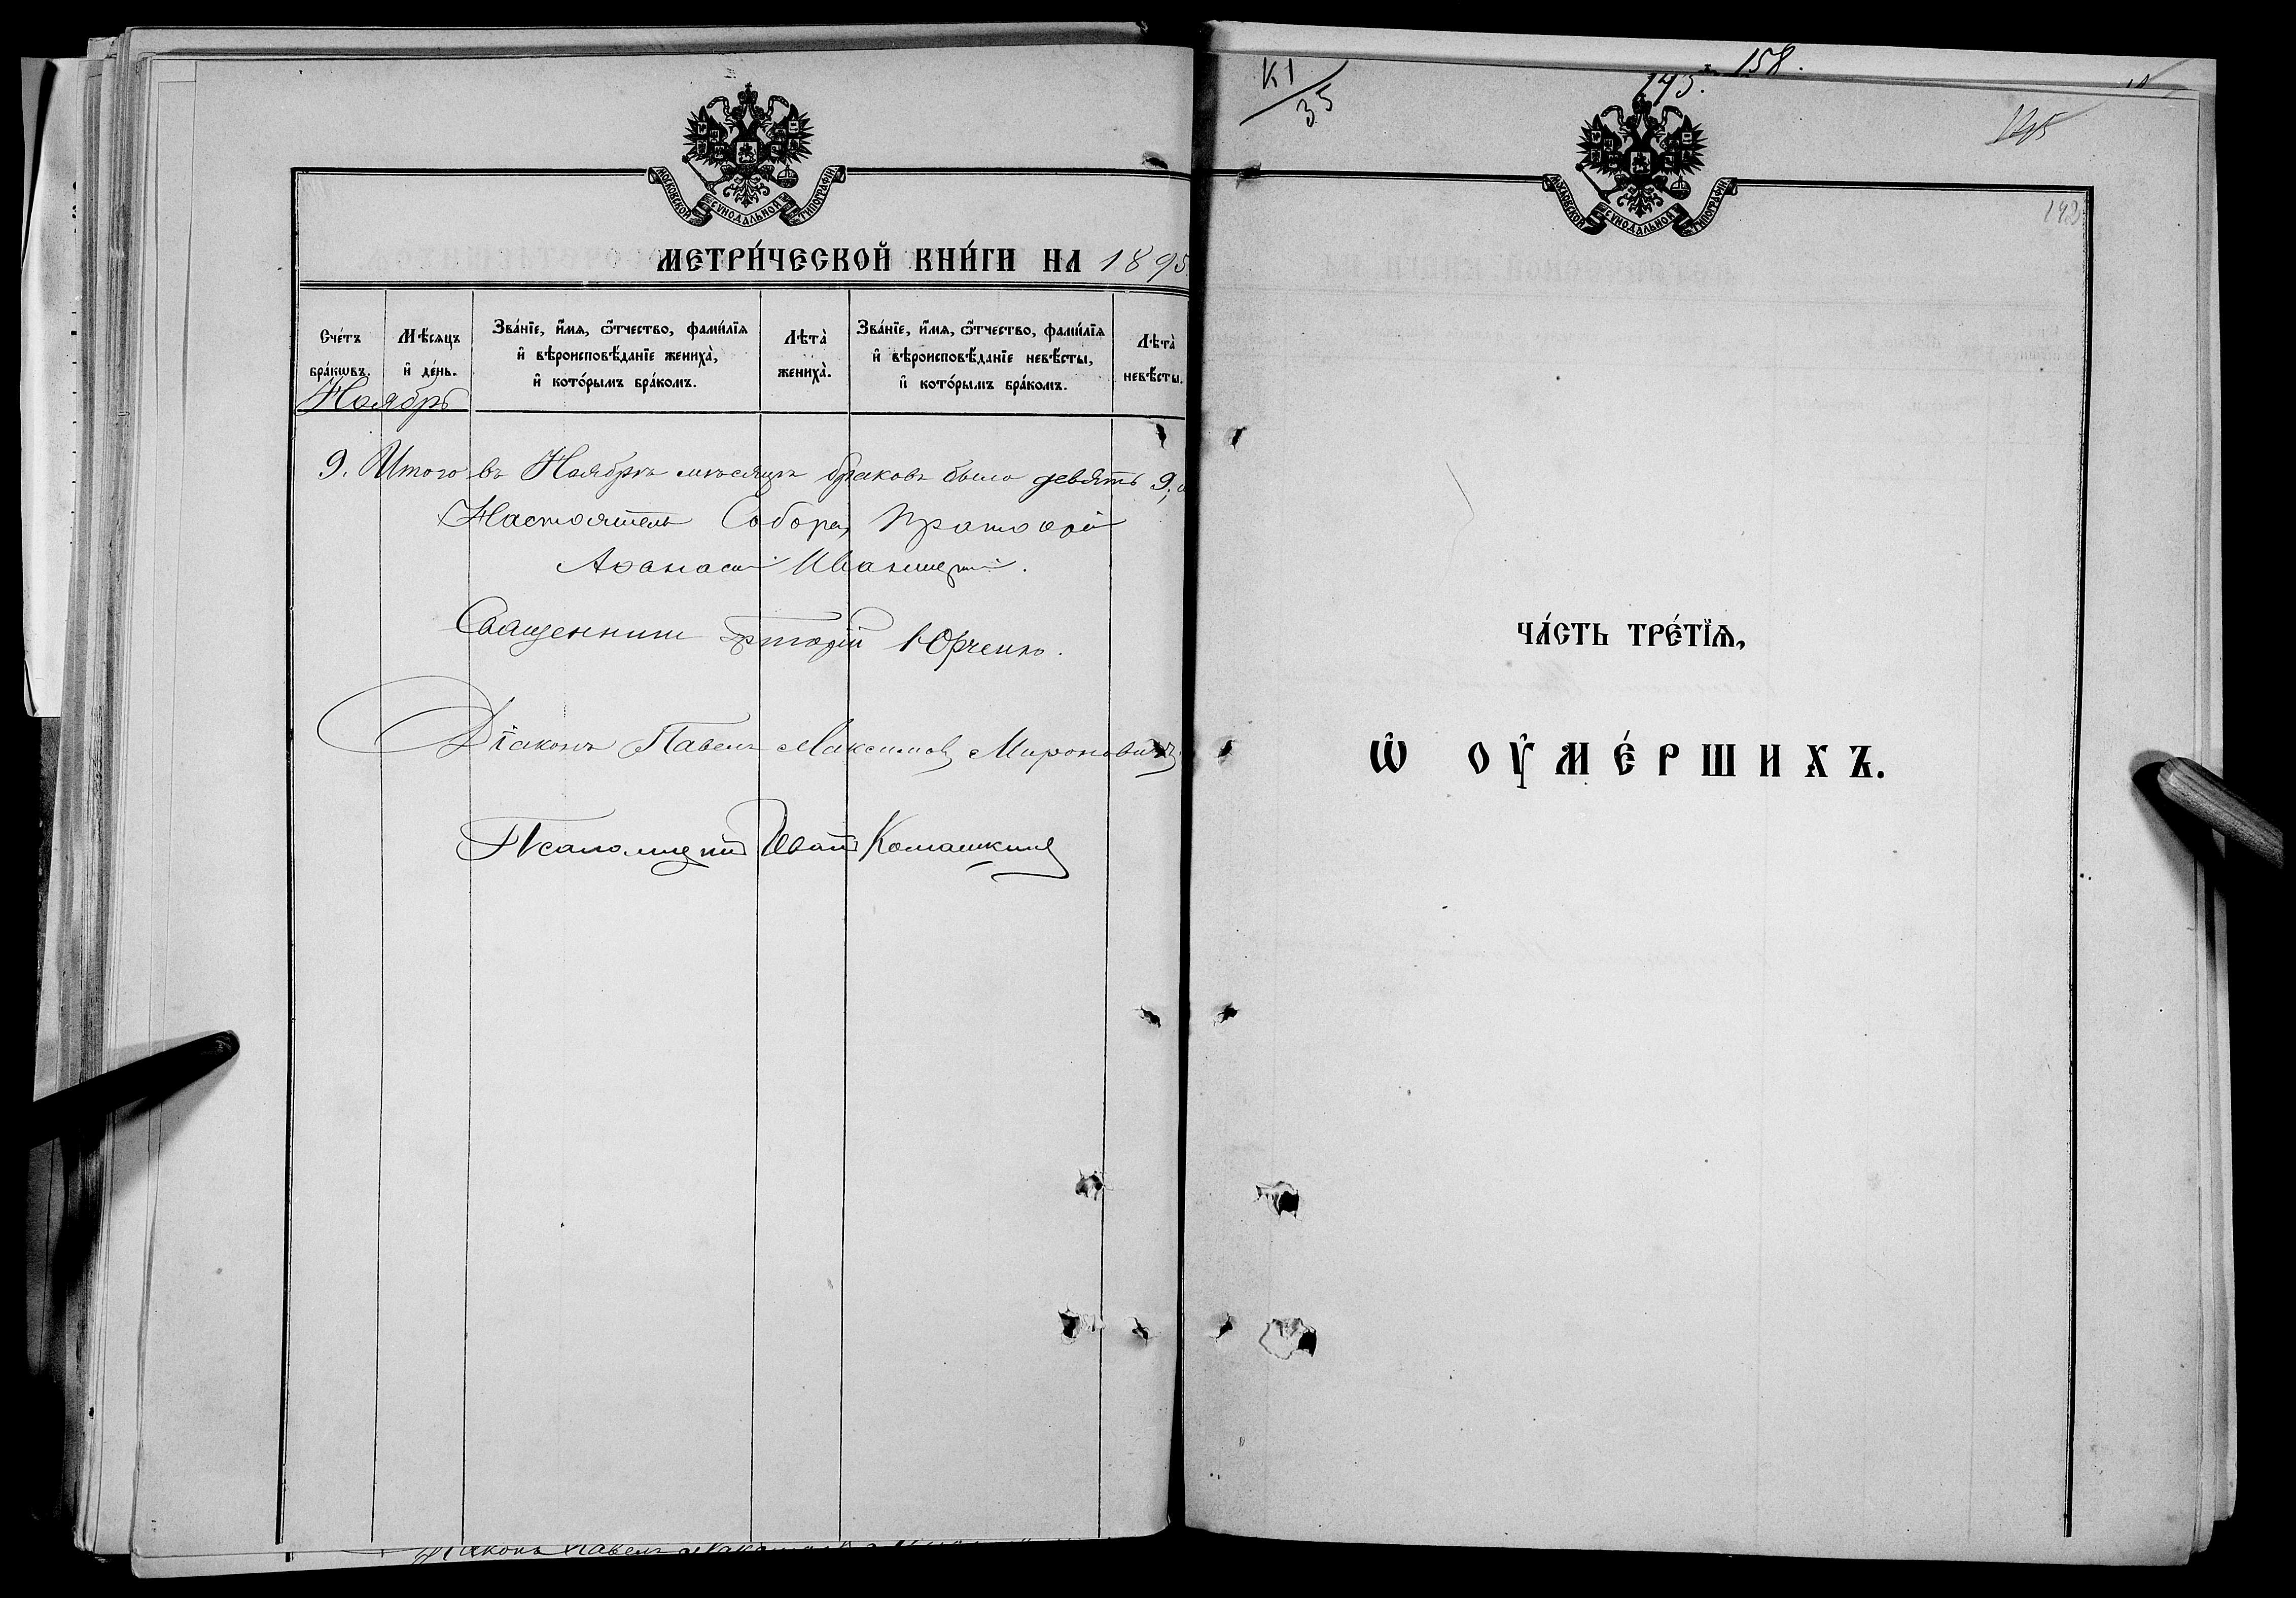 МОСКОВСКОЙ СѴНОДАЛЬНОЙ ТИПОГРАФІИ
МЕТРИ́ЧЕСКОЙ КНИ́ГИ НА 1895
Сче́тъ бра́кωвъ.
Мѣ́сяцъ и҆ де́нь.
Зва́нїе, и҆́мѧ, ѻ҆́тчество, фами́лїѧ
и҆ вѣроисповѣ́данїе жениха̀,
и҆ кото́рымъ бра́комъ.
Лѣта̀ жениха̀.
Зва́нїе, и҆́мѧ, ѻ҆́тчество, фами́лїѧ
и҆ вѣроисповѣ́данїе невѣ́сты,
и҆ кото́рымъ бра́комъ.
Лѣта̀ невѣ́сты.
Ноябрь
9. Итого въ Ноябрѣ мѣсяцѣ браковъ было девять 9,
Настоятель Собора, Протоіерей
Аѳанасій
Священникъ Юрченко.
Діаконъ Павелъ Максимовъ Мироновичъ
Псаломщикъ Иванъ Комашкинъ
К1
35
158.
145.
142
МОСКОВСКОЙ СѴНОДАЛЬНОЙ ТИПОГРАФІИ
ЧА́СТЬ ТРЕ́ТЇѦ,
Ѡ҆ ОУ҆МЕ́РШИХЪ.